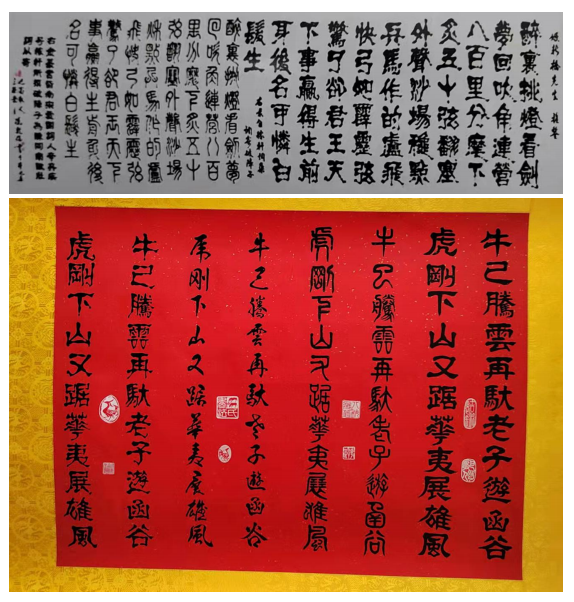 醉裏挑燈看劍
夢回吹角連營
八百里分麾下
炙五十弦翻塞
外聲沙場穐點
兵馬作的盧飛
快弓如霹靂弦
驚了卻君王天
下事贏得生前
身後名可憐白
髮生
醉裏挑燈看劍夢
回吹角連營八百
里分麾下炙五十
弦翻塞外聲沙場
秋點兵馬作的盧
飛快弓如霹靂弦
驚了卻君王天下
事贏得生前身後
名可憐白髮生
牛已騰雲再馱老子遊函谷
虎剛下山又踞華夷展雄風
牛已騰雲再馱老子遊函谷
虎剛下山又踞華夷展雄風
牛已騰雲再馱老子遊函谷
虎剛下山又踞華夷展雄風
牛已騰雲再馱老子遊函谷
虎剛下山又踞華夷展雄風